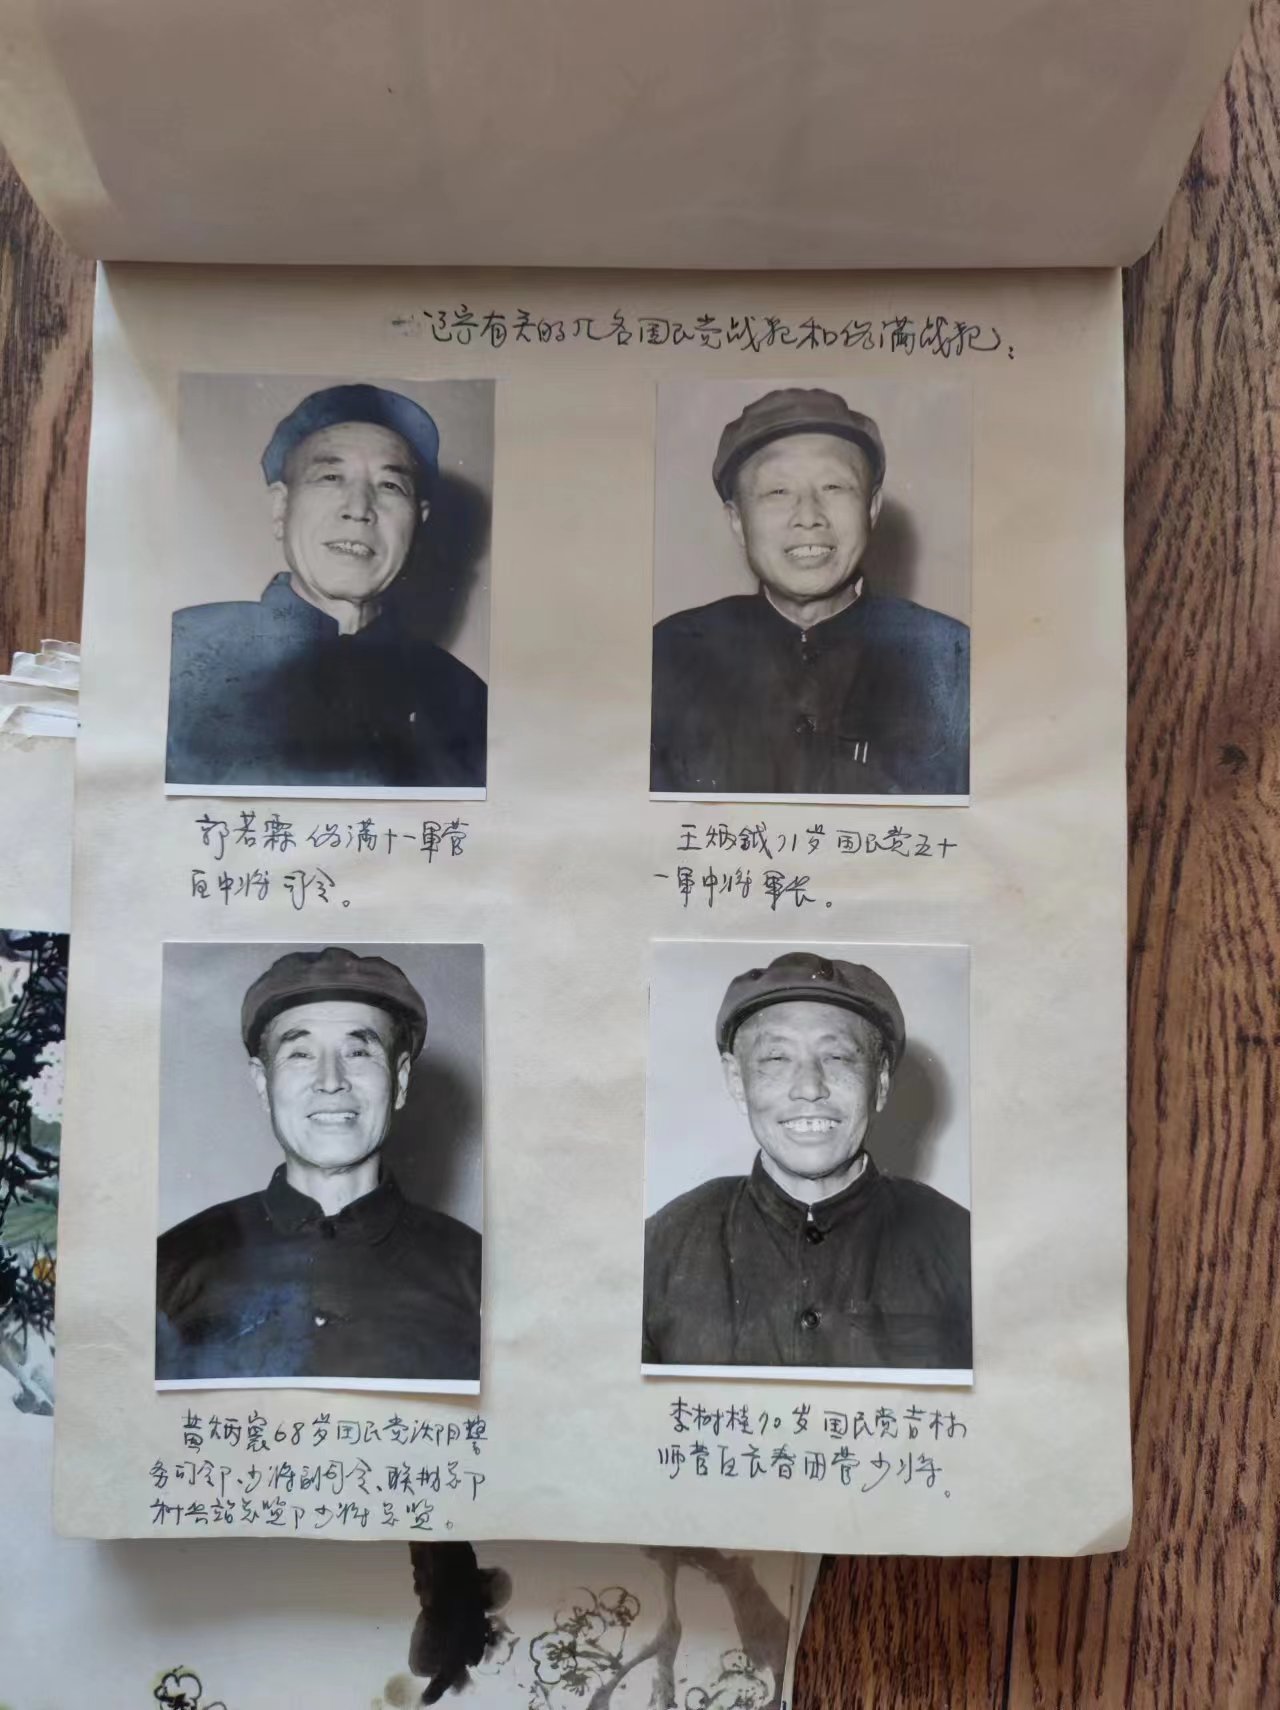 辽宁有关的几名国民党战犯和伪满战犯:
郭若霖 伪满十一軍管
区中将 司令。
王炳钺71岁 国民党五十
一軍中将 軍长。
黄炳寰68岁国民党沈阳警
务司令部、少将副司令、联勤总部
少将总监。
李树桂70岁 国民党吉林
师管区长春团管少将。